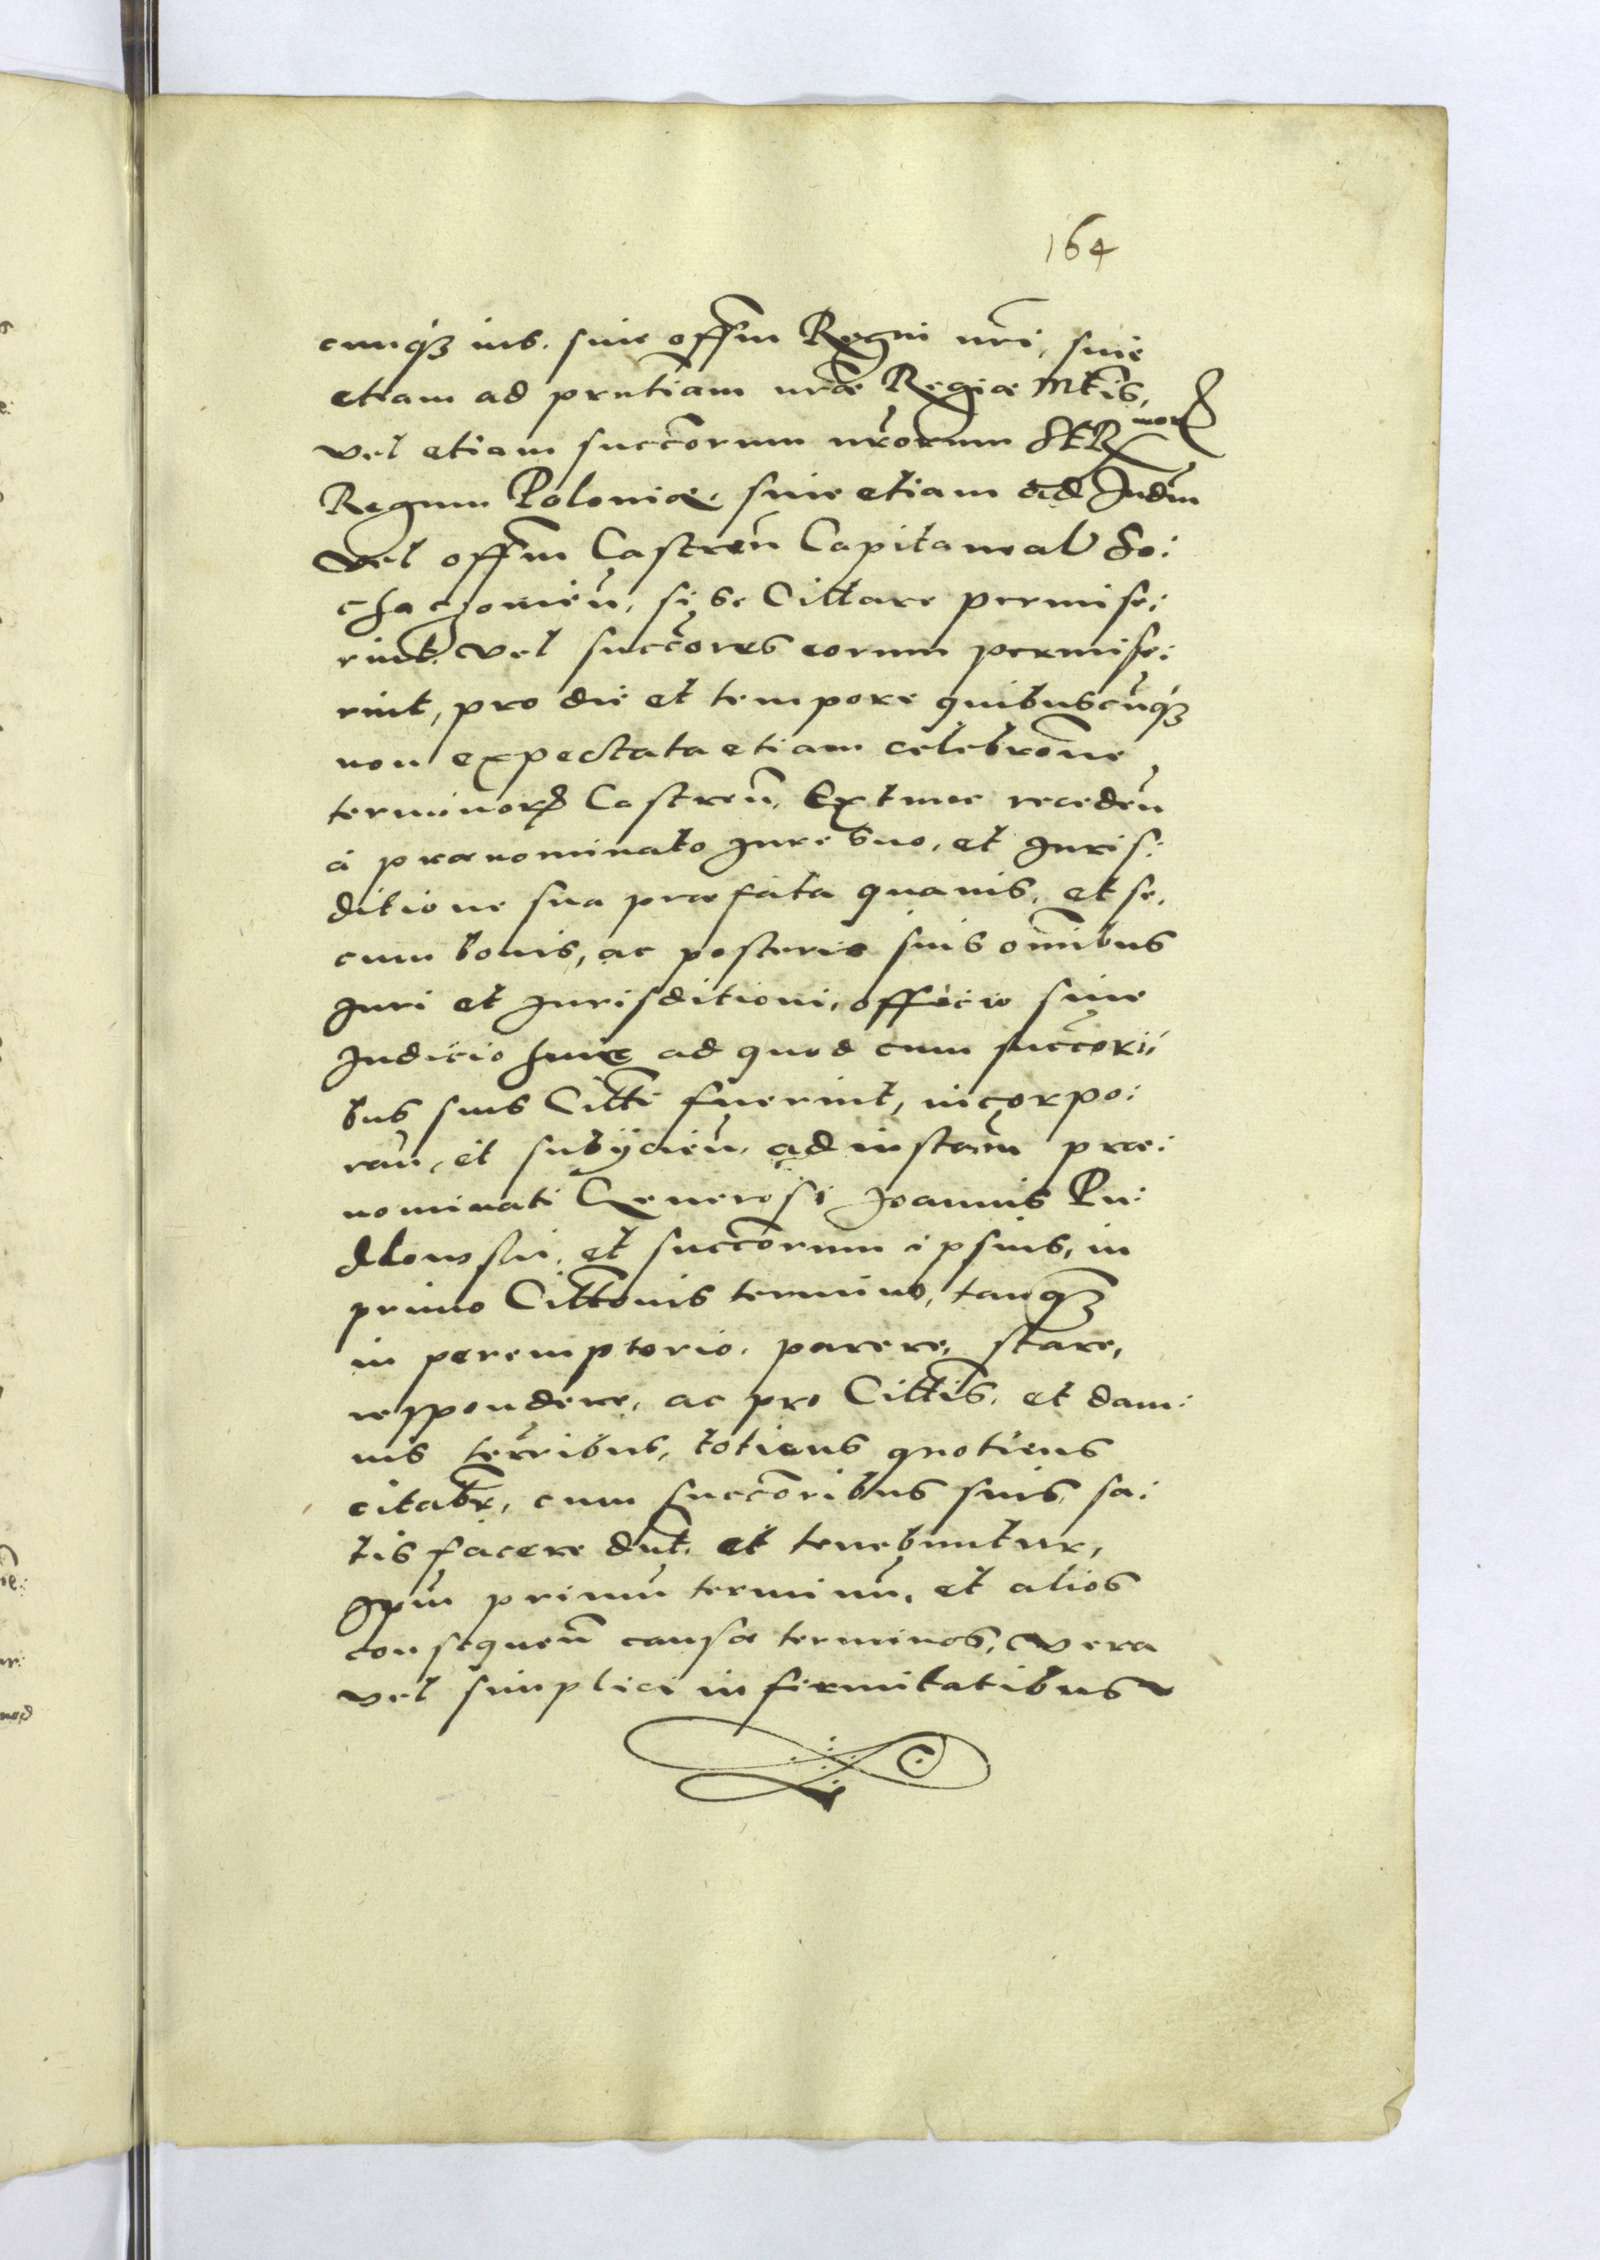 164
cunq₃ ius. siue offm̄ Regni nr̄i, siue
etiam ad prntiam nr̄æ Regiæ Mtis,
vel etiam succorum nr̄orum SERmorꝝ
Regum Poloniæ, siue etiam ad Judm̄
Vel offm̄ Castren̄ Capitaneal So:
chaczouien̄, si se Cittare permise:
rint. vel succores eorum permise:
rint, pro die et tempore quibuscūq₃
non expectata etiam celebrone
terminorꝝ Castren̄. Extunc receden̄
a prænominato Jure suo, et Juris:
ditione sua præfata quauis, et se,
cum bonis, ac posteris suis om̄ibus
Juri et Jurisditioni, officio siue
Judicio huic ad quod cum succori:
bus suis Citti fuerint, incorpo:
ran̄, et subijcien̄, ad instam̄ præ:
nominati Generosi Joannis Pu:
dlowski, et succorum ipsius, in
primo Cittonis termino, tanq₃
in peremptorio, parere, stare,
respondere, ac pro Cittis, et dam:
nis terribus, totiens quotiens
citabr̄, cum succoribus suis, sa:
tisfacere dn̄t. et tenebuntur,
Jpm̄ primū terminū, et alios
consequen̄ causæ terminos, vera
vel simplici infirmitatibus